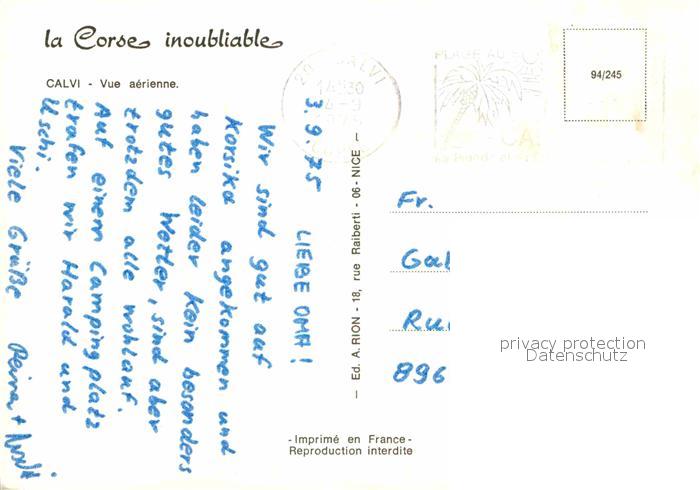 la Corse inoubliable
CALVI - Vue aérienne.
3.9.75
LIEBE OMA!
Wir sind gut auf
Korsika angekommen und
haben leider kein besonders
gutes Wetter, sind aber
trotzdem alle wohlauf.
Auf einem Campingplatz
trafen wir Harald und
Uschi.
Viele Grüße
— Ed. A. RION - 18, rue Raiberti - 06 - NICE —
CALVI
PLAGE AU
94/245
Fr.
Gal
Ru
896
privacy protection
Datenschutz
-Imprimé en France-
Reproduction interdite